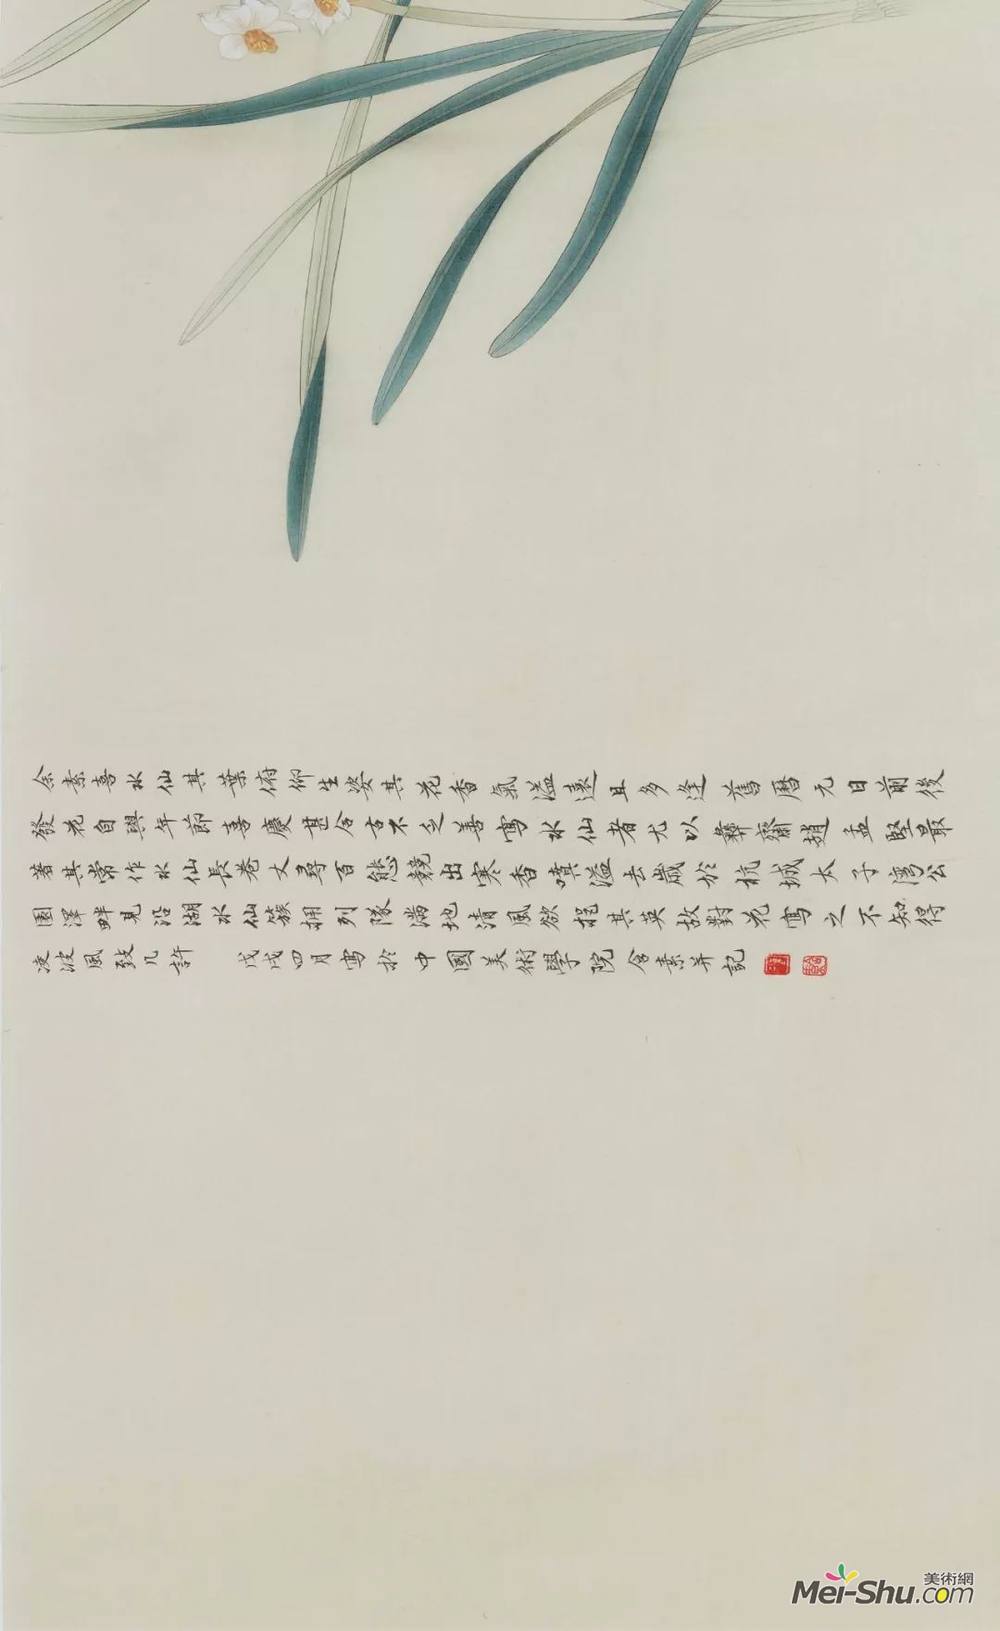 余素喜水仙其葉俯仰生姿其花香氣溢遠且多逢舊曆元日前後
發花自與年節喜慶甚合古不乏善寫水仙者尤以彝齋趙孟堅最
著其常作水仙長卷丈尋百態競出寒香嗔溢去歲於杭城太子灣公
園澤畔見沿湖水仙簇擁列隊滿地清風欲挹其英故對花寫之不知得
凌波風致几許 戊戌四月寫於中國美術學院含素并記
Mei-Shu.com 美術網